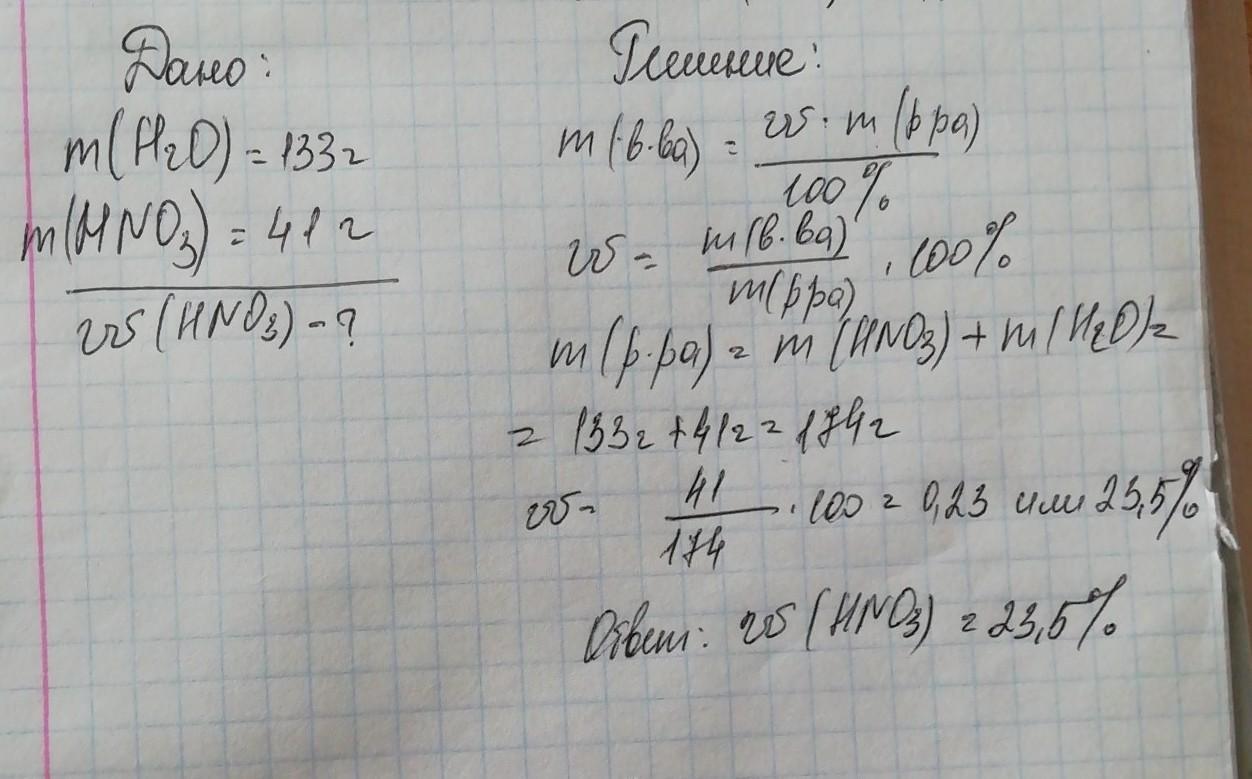 Дано:
m(H₂O) = 133г
m(HNO₃) = 41 г
w(HNO₃) - ?
Решение:
m(в.ва) = w · m(р ра) / 100%
w = m(в.ва) / m(р ра) · 100%
m(р.ра) = m(HNO₃) + m(H₂O) =
= 133г + 41г = 174г
w = 41 / 174 · 100 = 0,23 или 23,5%
Ответ: w (HNO₃) = 23,5%